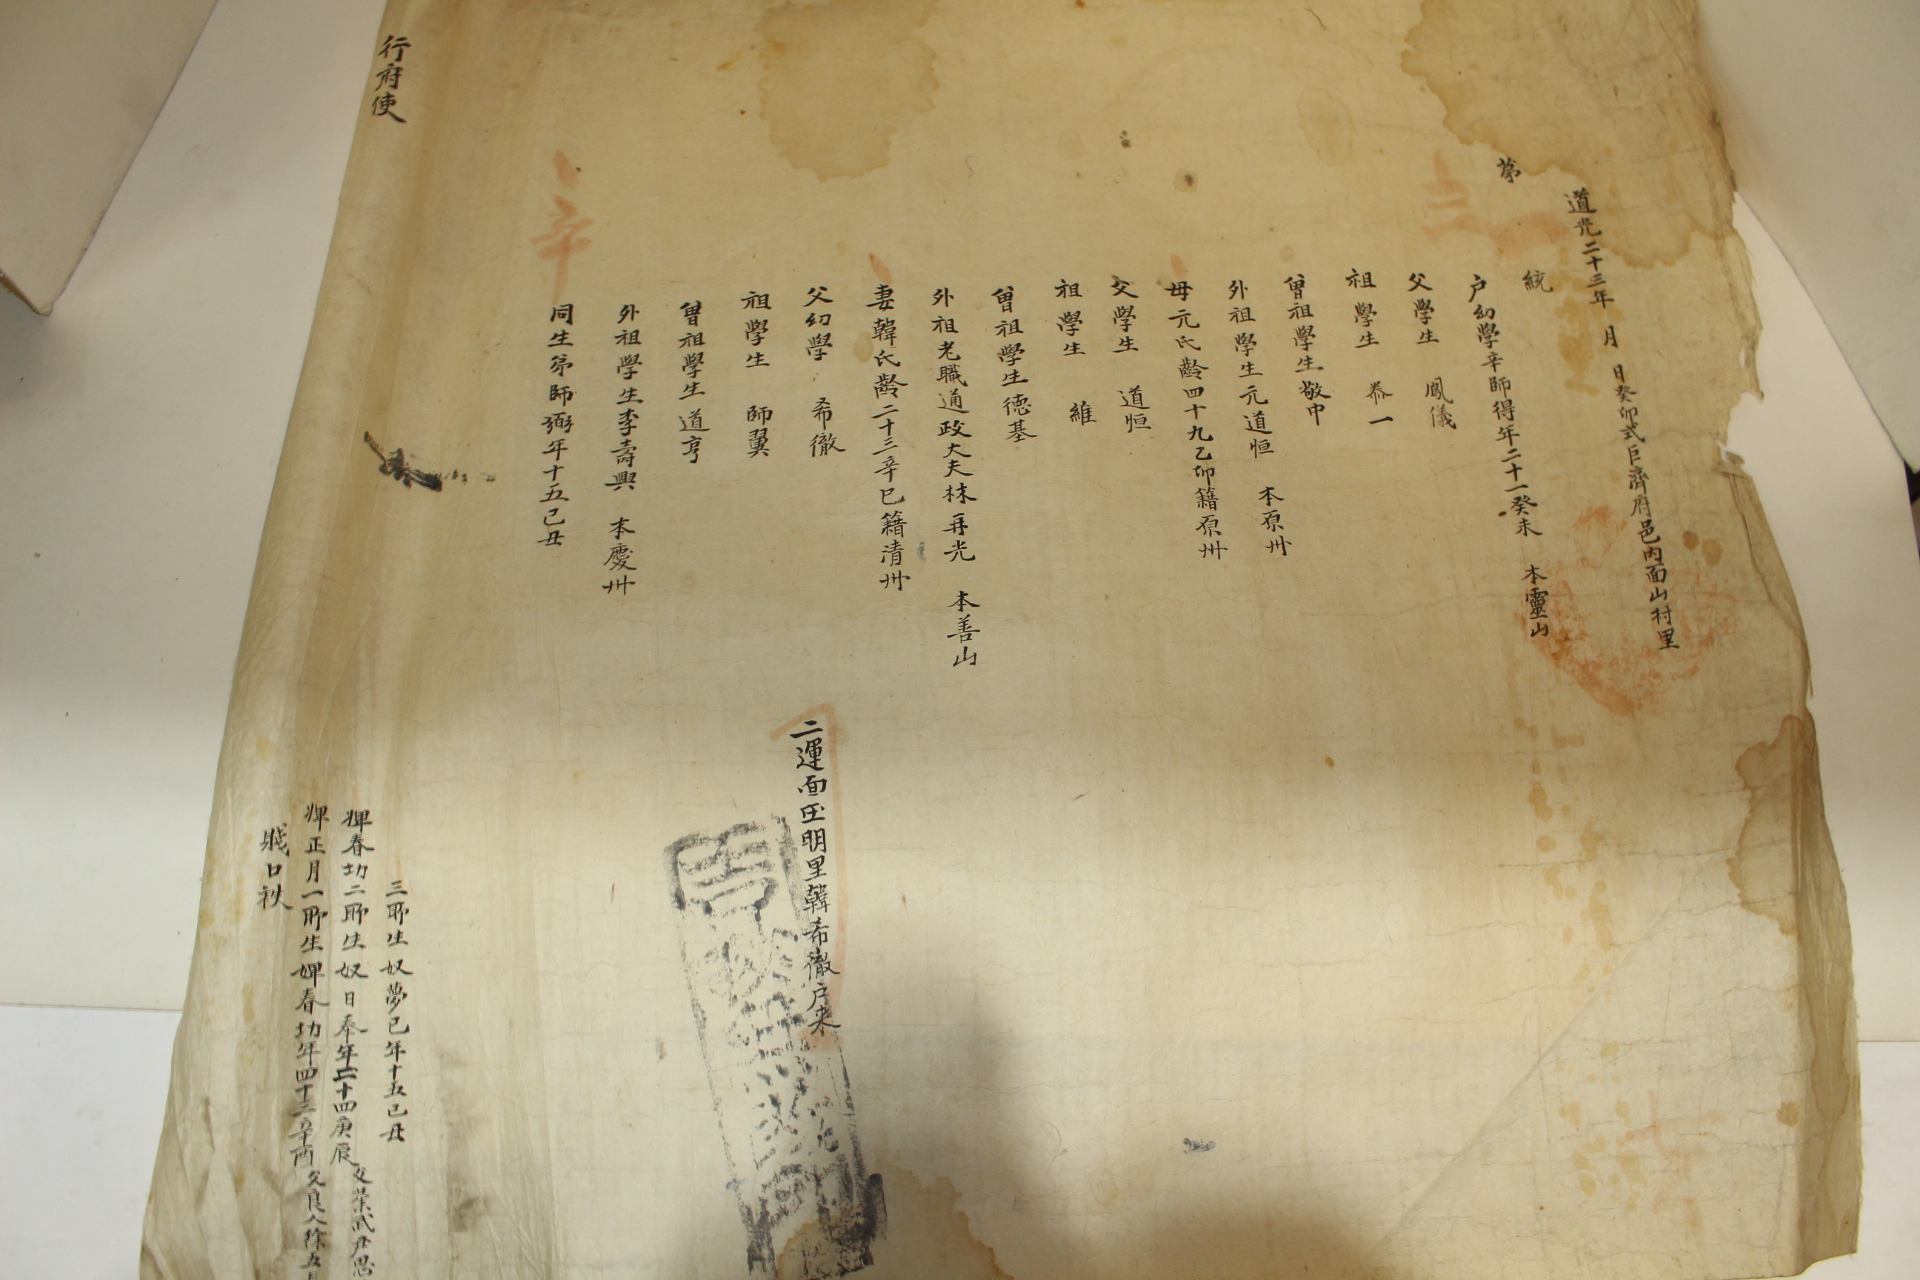 道光二十三年 月 日癸卯式巨濟府邑內面山村里
第 統
戶幼學辛師得年二十一癸未 本靈山
父學生 鳳儀
祖學生 泰一
曾祖學生敬中
外祖學生元道恒 本原州
母元氏齡四十九乙卯籍原州
父學生 道恒
祖學生 維
曾祖學生德基
外祖老職通政大夫林再光 本善山
妻韓氏齡二十三辛巳籍清州
父幼學 希徹
祖學生 師翼
曾祖學生道亨
外祖學生李壽興 本慶州
同生弟師弼年十五己丑
二運面玉明里韓希徹戶來
辛
行府使
三所生奴夢已年十五己丑
婢春切二所生奴日奉年二十四庚辰
婢正月一所生婢春切年四十三辛酉父良人徐五
賤口秩